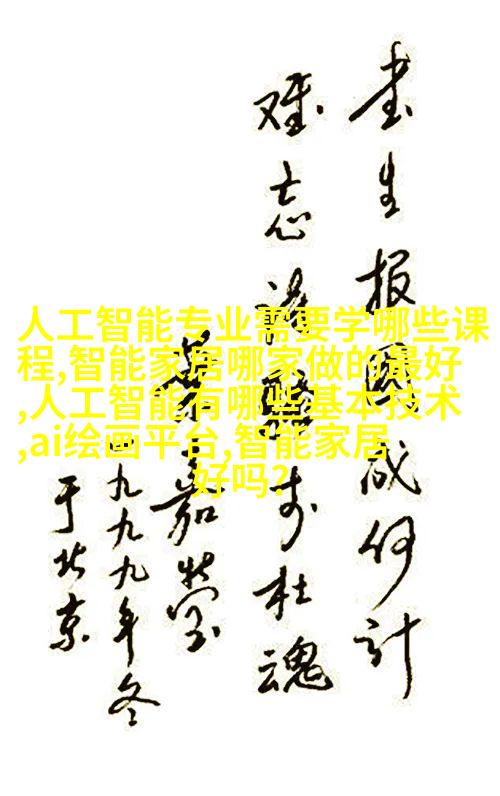 人工智能专业需要学哪些课
程,智能家居哪家做的最好
,人工智能有哪些基本技术
,ai绘画平台,智能家居
好吗?
书生报國成何计
难忘诗骚李杜魂
葉嘉莹
一九九九年冬
于北京